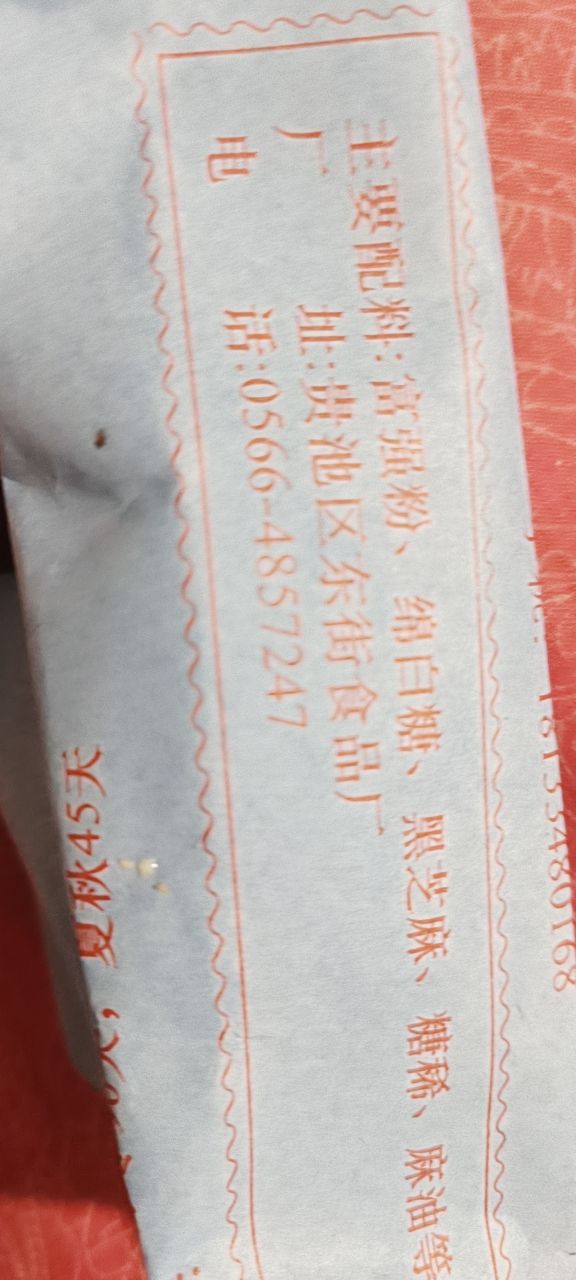 主要配料:富强粉、绵白糖、黑芝麻、糖稀、麻油等
厂 址:贵池区东街食品厂
电 话:0566-4857247
夏秋45天